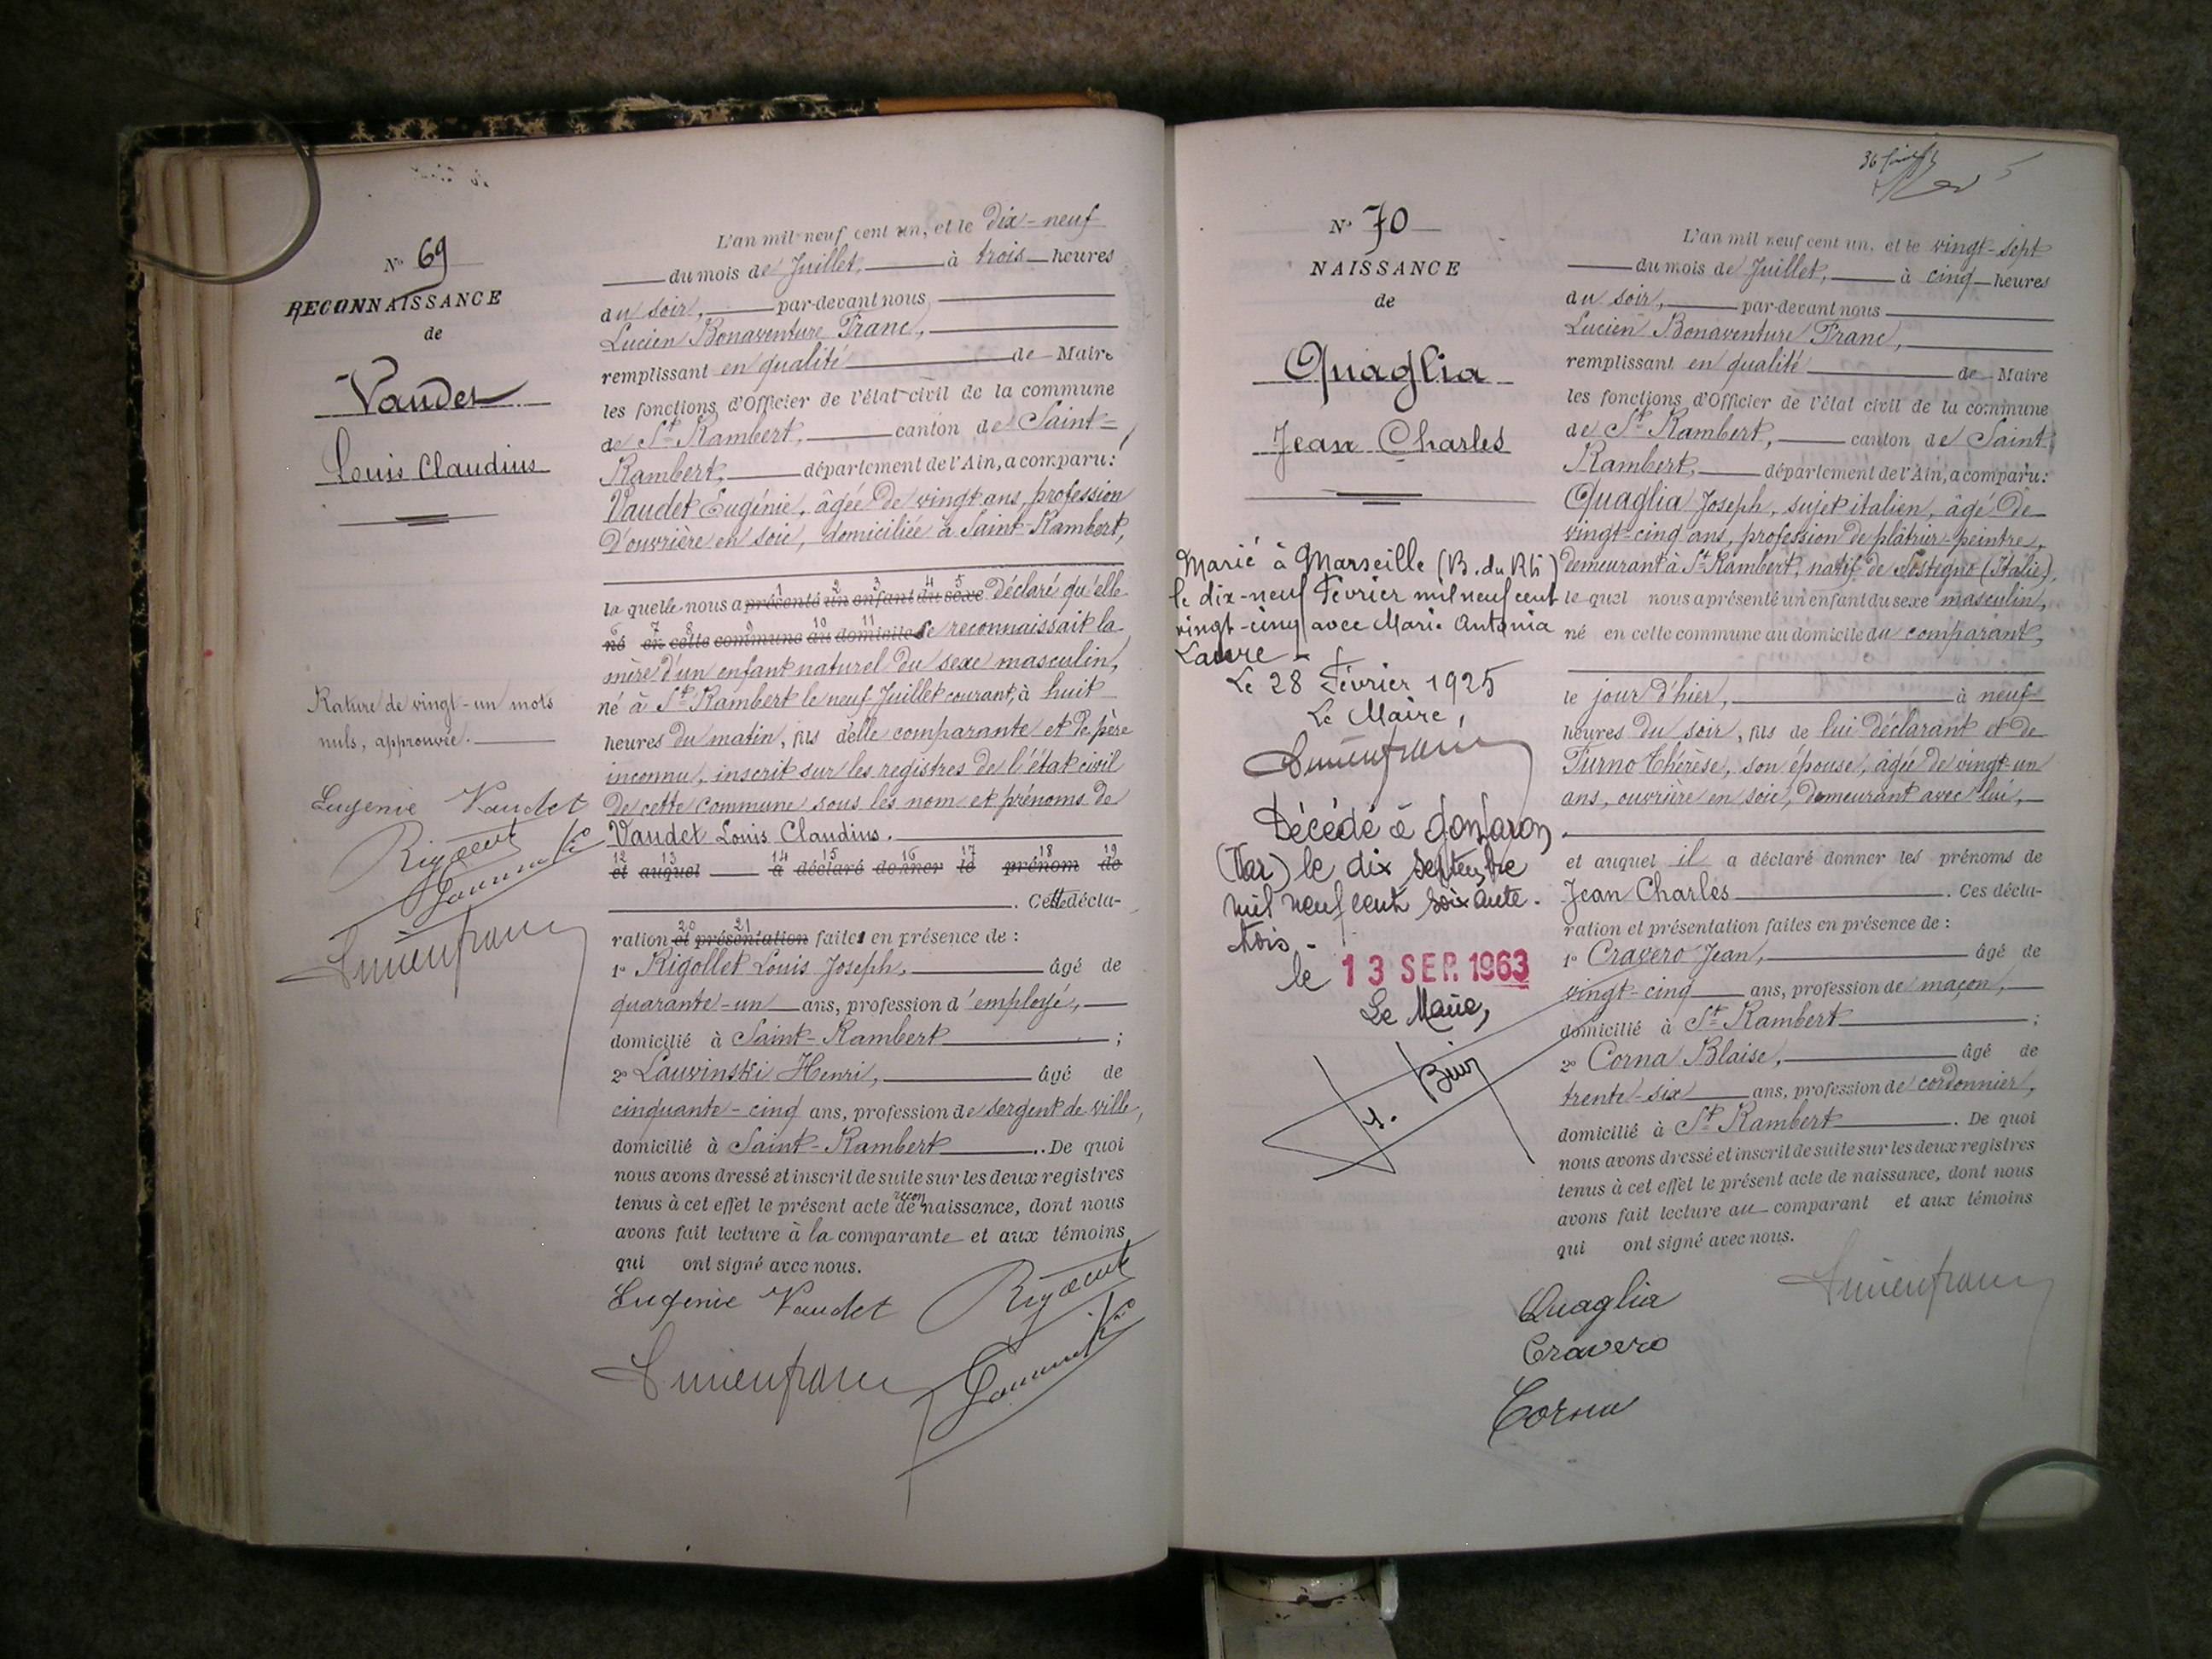 N° 69
RECONNAISSANCE
de
Vaudet
Louis Claudius
Rature de vingt-un mots
nuls, approuvée.
Eugenie Vaudet
L'an mil neuf cent un, et le Dix-neuf
du mois de Juillet, à trois heures
du soir, par-devant nous
Lucien Bonaventure Franc,
remplissant en qualité de Maire
les fonctions d'Officier de l'état civil de la commune
de St Rambert, canton de Saint-
Rambert, département de l'Ain, a comparu:
Vaudet Eugénie, âgée de vingt ans, profession
d'ouvrière en soie, domiciliée à Saint-Rambert,
1 2 3 4 5
la quelle nous a présenté un enfant du sexe déclaré qu'elle
6 7 8 9 10 11
né en cette commune au domicile se reconnaissait la
mère d'un enfant naturel du sexe masculin,
né à St Rambert le neuf Juillet courant, à huit
heures du matin, fils d'elle comparante et de père
inconnu, inscrit sur les registres de l'état civil
de cette commune sous les nom et prénoms de
Vaudet Louis Claudius.
12 13 14 15 16 17 18 19
et auquel a déclaré donner le prénom de
. Cette décla-
20 21
ration et présentation faite en présence de :
1° Rigollet Louis Joseph, âgé de
quarante-un ans, profession d'employé,
domicilié à Saint-Rambert ;
2° Lauvinski Henri, âgé de
cinquante-cinq ans, profession de sergent de ville,
domicilié à Saint-Rambert . De quoi
nous avons dressé et inscrit de suite sur les deux registres
recon
tenus à cet effet le présent acte de naissance, dont nous
avons fait lecture à la comparante et aux témoins
qui ont signé avec nous.
Eugenie Vaudet
N° 70
NAISSANCE
de
Quaglia
Jean Charles
Marié à Marseille (B. du Rh)
le dix-neuf Février mil neuf cent
vingt-cinq avec Marie Antonia
Laure
Le 28 Février 1925
Le Maire,
Décédé à Gonfaron
(Var) le dix septembre
mil neuf cent soixante-
trois -
le 13 SEP. 1963
Le Maire,
L'an mil neuf cent un, et le vingt-sept
du mois de Juillet, à cinq heures
du soir, par-devant nous
Lucien Bonaventure Franc,
remplissant en qualité de Maire
les fonctions d'Officier de l'état civil de la commune
de St Rambert, canton de Saint
Rambert, département de l'Ain, a comparu:
Quaglia Joseph, sujet italien, âgé de
vingt-cinq ans, profession de plâtrier-peintre,
demeurant à St Rambert, natif de Sostegno (Italie),
le quel nous a présenté un enfant du sexe masculin,
né en cette commune au domicile du comparant,
le jour d'hier, à neuf
heures du soir, fils de lui déclarant et de
Turno Thérèse, son épouse, âgée de vingt-un
ans, ouvrière en soie, demeurant avec lui,
et auquel il a déclaré donner les prénoms de
Jean Charles . Ces décla-
ration et présentation faites en présence de :
1° Cravero Jean, âgé de
vingt-cinq ans, profession de maçon,
domicilié à St Rambert ;
2° Corna Blaise, âgé de
trente-six ans, profession de cordonnier,
domicilié à St Rambert . De quoi
nous avons dressé et inscrit de suite sur les deux registres
tenus à cet effet le présent acte de naissance, dont nous
avons fait lecture au comparant et aux témoins
qui ont signé avec nous.
Quaglia
Cravero
Corna